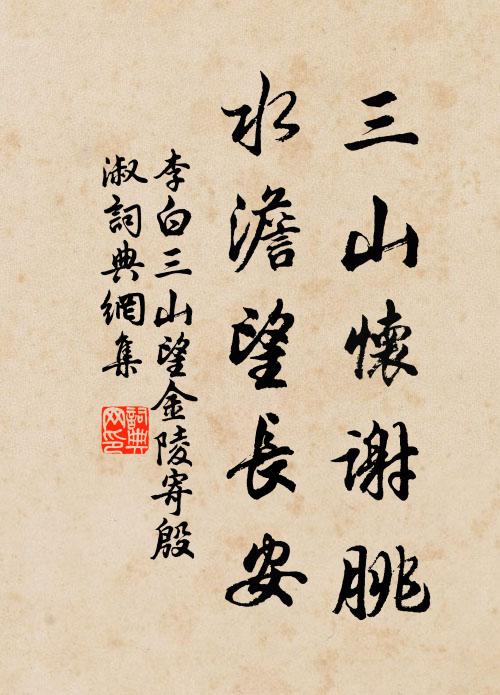 三山懷謝朓
水澹望長安
李白三山望金陵寄殷
淑詞典網集
詞典
网印